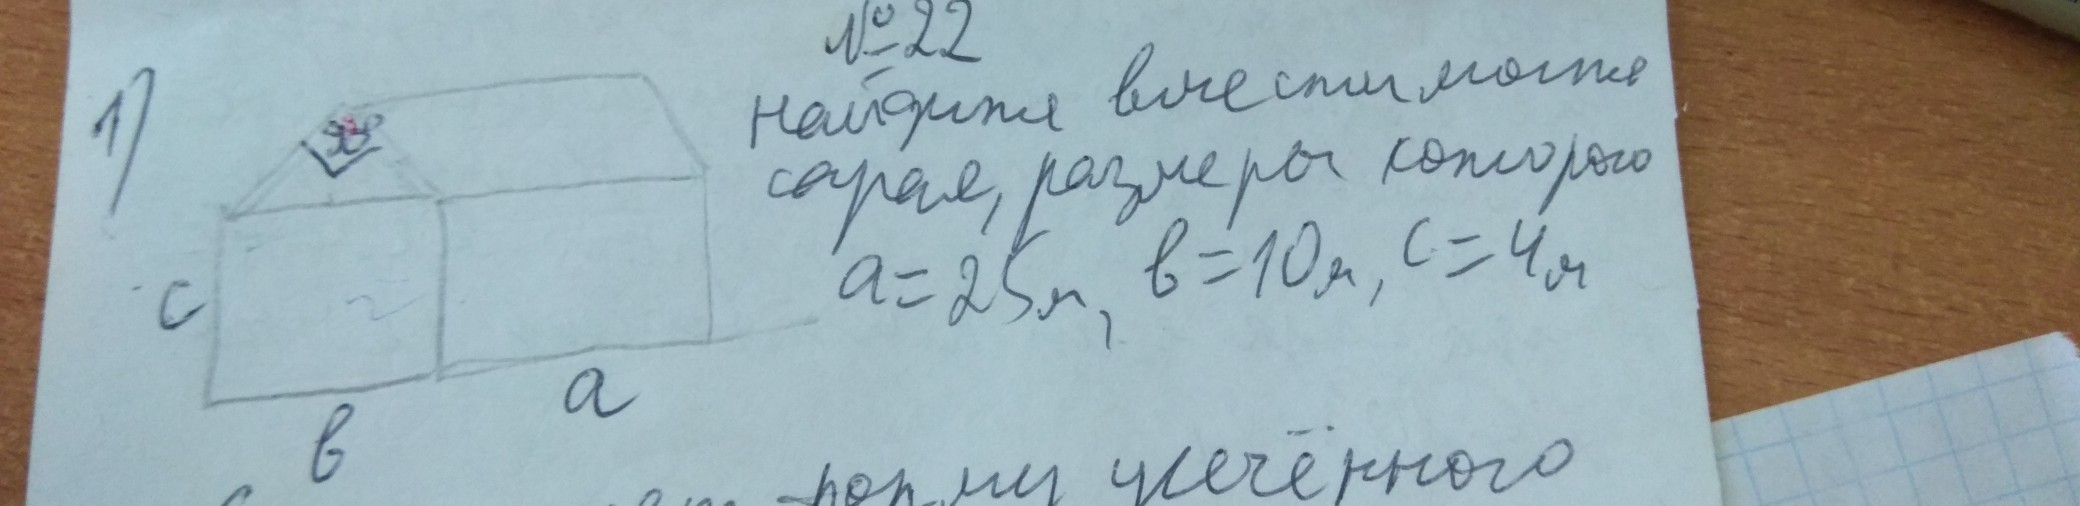 №22
1)
найдите вместимость
сарая, размеры которого
а=25м, в=10м, с=4м
с
а
в
формы усечённого